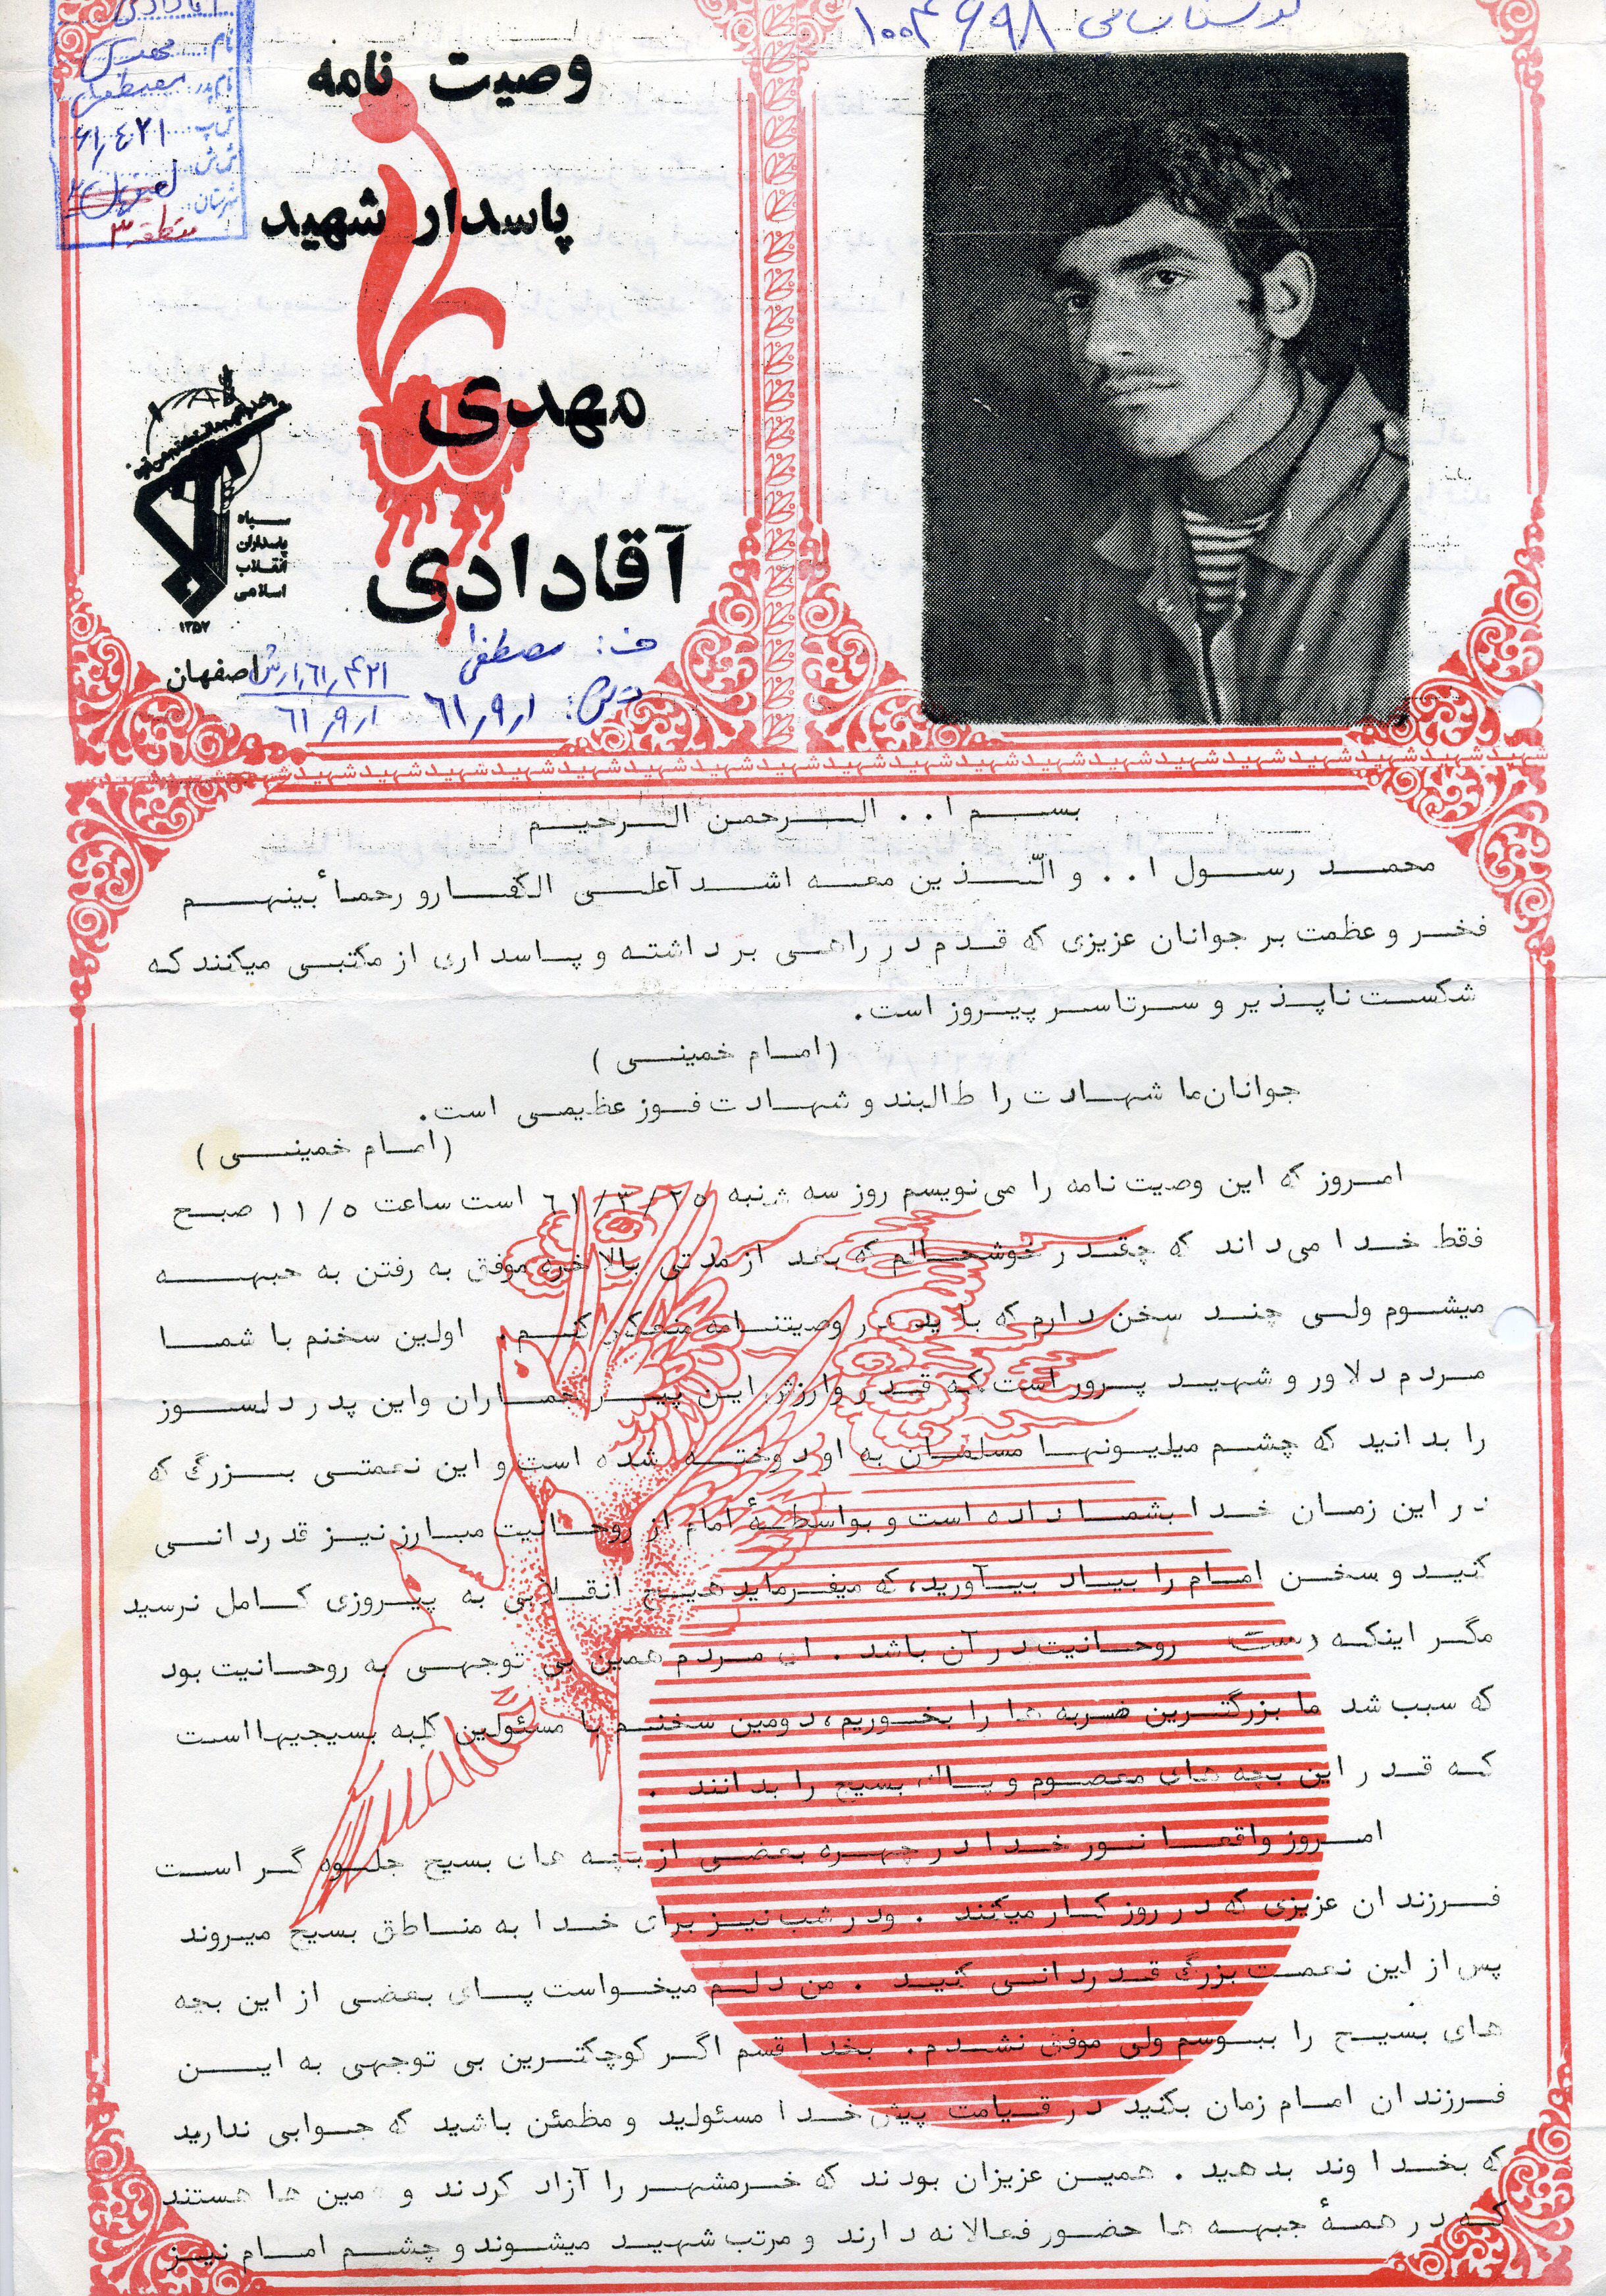 کد شناسایی ۱۰۰۴۶۹۸
آقادادی
نام: مهدی
نام پدر: مصطفی
ش پ: ۶۱٫۴۲۱
ش ش:
شهرستان:
منطقه ۳
وصیت نامه
پاسدار شهید
مهدی
آقادادی
سپاه
پاسداران
انقلاب
اسلامی
۱۳۵۷
اصفهان
ف: مصطفی
۶۱٫۹٫۱
۶۱٫۴۲۱
۶۱٫۹٫۱
شهید شهید شهید شهید شهید شهید شهید شهید شهید شهید شهید شهید شهید شهید شهید شهید شهید شهید شهید
بسم ا.. الرحمن الرحیم
محمد رسول ا.. و الّذین معه اشدآعلی الکفارو رحمأبینهم
فخر و عظمت بر جوانان عزیزی که قدم در راهی برداشته و پاسداری از مکتبی میکنندکه
شکست ناپذیر و سرتاسر پیروز است.
(امام خمینی)
جوانان‌ما شهادت را طالبند و شهادت فوز عظیمی است.
(امام خمینی)
امروز که این وصیت نامه را می‌نویسم روز سه شنبه ۶۱/۳/۲۵ است ساعت ۱۱/۵ صبح
فقط خدا می‌داند که چقدر خوشحالم که بعد از مدتی بالاخره موفق به رفتن به جبهه
میشوم ولی چند سخن دارم که باید در وصیتنامه متذکر کنم. اولین سخنم با شما
مردم دلاور و شهید پرور است که قدر وارزش این پیر جماران واین پدر دلسوز
را بدانید که چشم میلیونها مسلمان به او دوخته شده است و این نعمتی بزرگ که
در این زمان خدا بشما داده است و بواسطهٔ امام از روحانیت مبارز نیز قدردانی
کنید و سخن امام را بیاد بیآورید، که میفرماید هیچ انقلابی به پیروزی کامل نرسید
مگر اینکه دست روحانیت در آن باشد. ای مردم همین بی توجهی به روحانیت بود
که سبب شد ما بزرگترین ضربه ها را بخوریم، دومین سخنم با مسئولین کلیه بسیجیهااست
که قدر این بچه های معصوم و پاک بسیج را بدانند.
امروز واقعا نور خدا در چهره بعضی از بچه های بسیج جلوه گر است
فرزندان عزیزی که در روز کار میکنند. ودر شب نیز برای خدا به مناطق بسیج میروند
پس از این نعمت بزرگ قدردانی کنید. من دلم میخواست پای بعضی از این بچه
های بسیج را ببوسم ولی موفق نشدم. بخدا قسم اگر کوچکترین بی توجهی به این
فرزندان امام زمان بکنید در قیامت پیش خدا مسئولید و مطمئن باشید که جوابی ندارید
که بخداوند بدهید. همین عزیزان بودند که خرمشهر را آزاد کردند و همین ها هستند
که در همهٔ جبهه ها حضور فعالانه دارند و مرتب شهید میشوند و چشم امام نیز